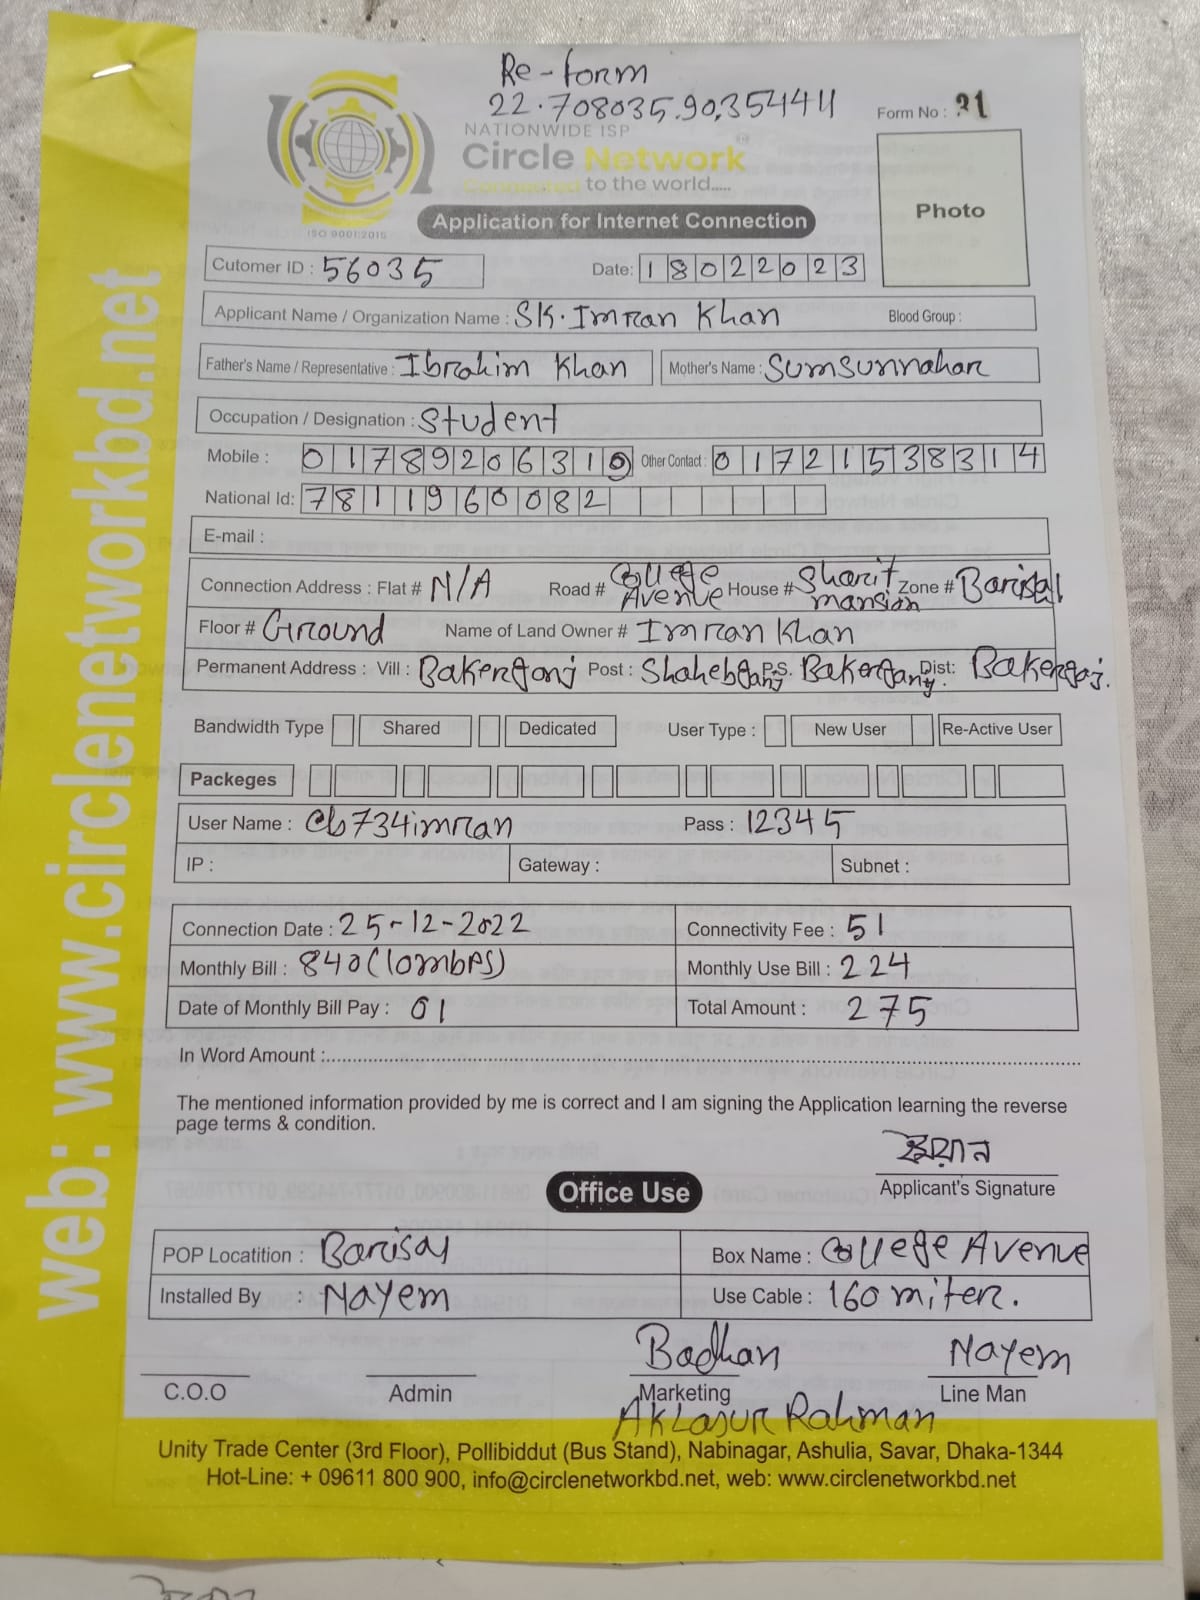 Re-form
22.708035.90.354411
Form No : 21
NATIONWIDE ISP
Circle Network
Connected to the world.....
ISO 9001:2015
Photo
Application for Internet Connection
Cutomer ID : 56035 Date: 18022023
Applicant Name / Organization Name : SK. Imran Khan Blood Group :
Father's Name / Representative : Ibrahim Khan Mother's Name : Sumsunnahar
Occupation / Designation : Student
Mobile : 01789206310 Other Contact : 01721538314
National Id: 7811960082
E-mail :
Connection Address : Flat # N/A Road # College Avenue House # Sharif mansion Zone # Barisal
Floor # Ground Name of Land Owner # Imran Khan
Permanent Address : Vill : Bakergonj Post : Shahebganj P.S. Bakerganj Dist: Bakergoj.
Bandwidth Type Shared Dedicated User Type : New User Re-Active User
Packeges
User Name : cb734imran Pass : 12345
IP : Gateway : Subnet :
Connection Date : 25-12-2022 Connectivity Fee : 51
Monthly Bill : 840(10mbps) Monthly Use Bill : 224
Date of Monthly Bill Pay : 01 Total Amount : 275
In Word Amount :
The mentioned information provided by me is correct and I am signing the Application learning the reverse
page terms & condition.
ইমরান
Applicant's Signature
Office Use
POP Locatition : Barisal Box Name : College Avenue
Installed By : Nayem Use Cable : 160 miter.
Badhan Nayem
C.O.O Admin Marketing Line Man
Aklasur Rahman
Unity Trade Center (3rd Floor), Pollibiddut (Bus Stand), Nabinagar, Ashulia, Savar, Dhaka-1344
Hot-Line: + 09611 800 900, info@circlenetworkbd.net, web: www.circlenetworkbd.net
web: www.circlenetworkbd.net